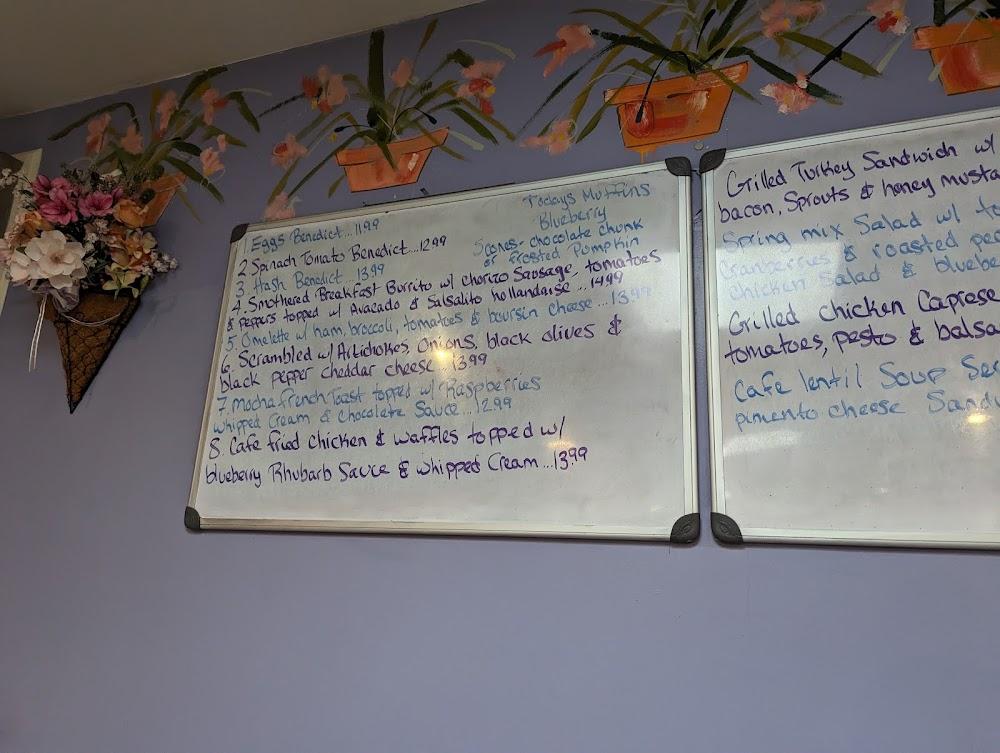 1. Eggs Benedict...11.99
2. Spinach Tomato Benedict...12.99
3. Hash Benedict 13.99
4. Smothered Breakfast Burrito w/ chorizo Sausage, tomatoes
& peppers topped w/ Avacado & Salsalito hollandaise...14.99
5. Omelette w/ ham, broccoli, tomatoes & boursin cheese...13.99
6. Scrambled w/ Artichokes, Onions, black olives &
black pepper cheddar cheese...13.99
7. Mocha French Toast topped w/ Raspberries
whipped Cream & Chocolate Sauce...12.99
8. Cafe fried chicken & waffles topped w/
blueberry Rhubarb Sauce & whipped Cream...13.99
Todays Muffins
Blueberry
Scones- chocolate chunk
or Frosted Pumpkin
Grilled Turkey Sandwich w/
bacon, Sprouts & honey musta
Spring mix Salad w/
Cranberries & roasted
Chicken Salad & bluebe
Grilled chicken Caprese
tomatoes, pesto & balsa
Cafe lentil Soup Ser
pimento cheese Sand